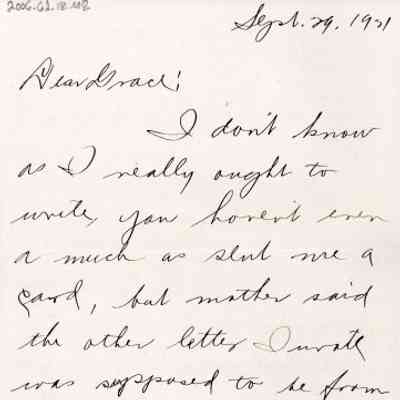 2006.62.18.02
Sept. 29, 1921
Dear Grace:
I don't know
as I really ought to
write, you haven't even
a much as sent me a
card, but mother said
the other letter I wrote
was supposed to be from